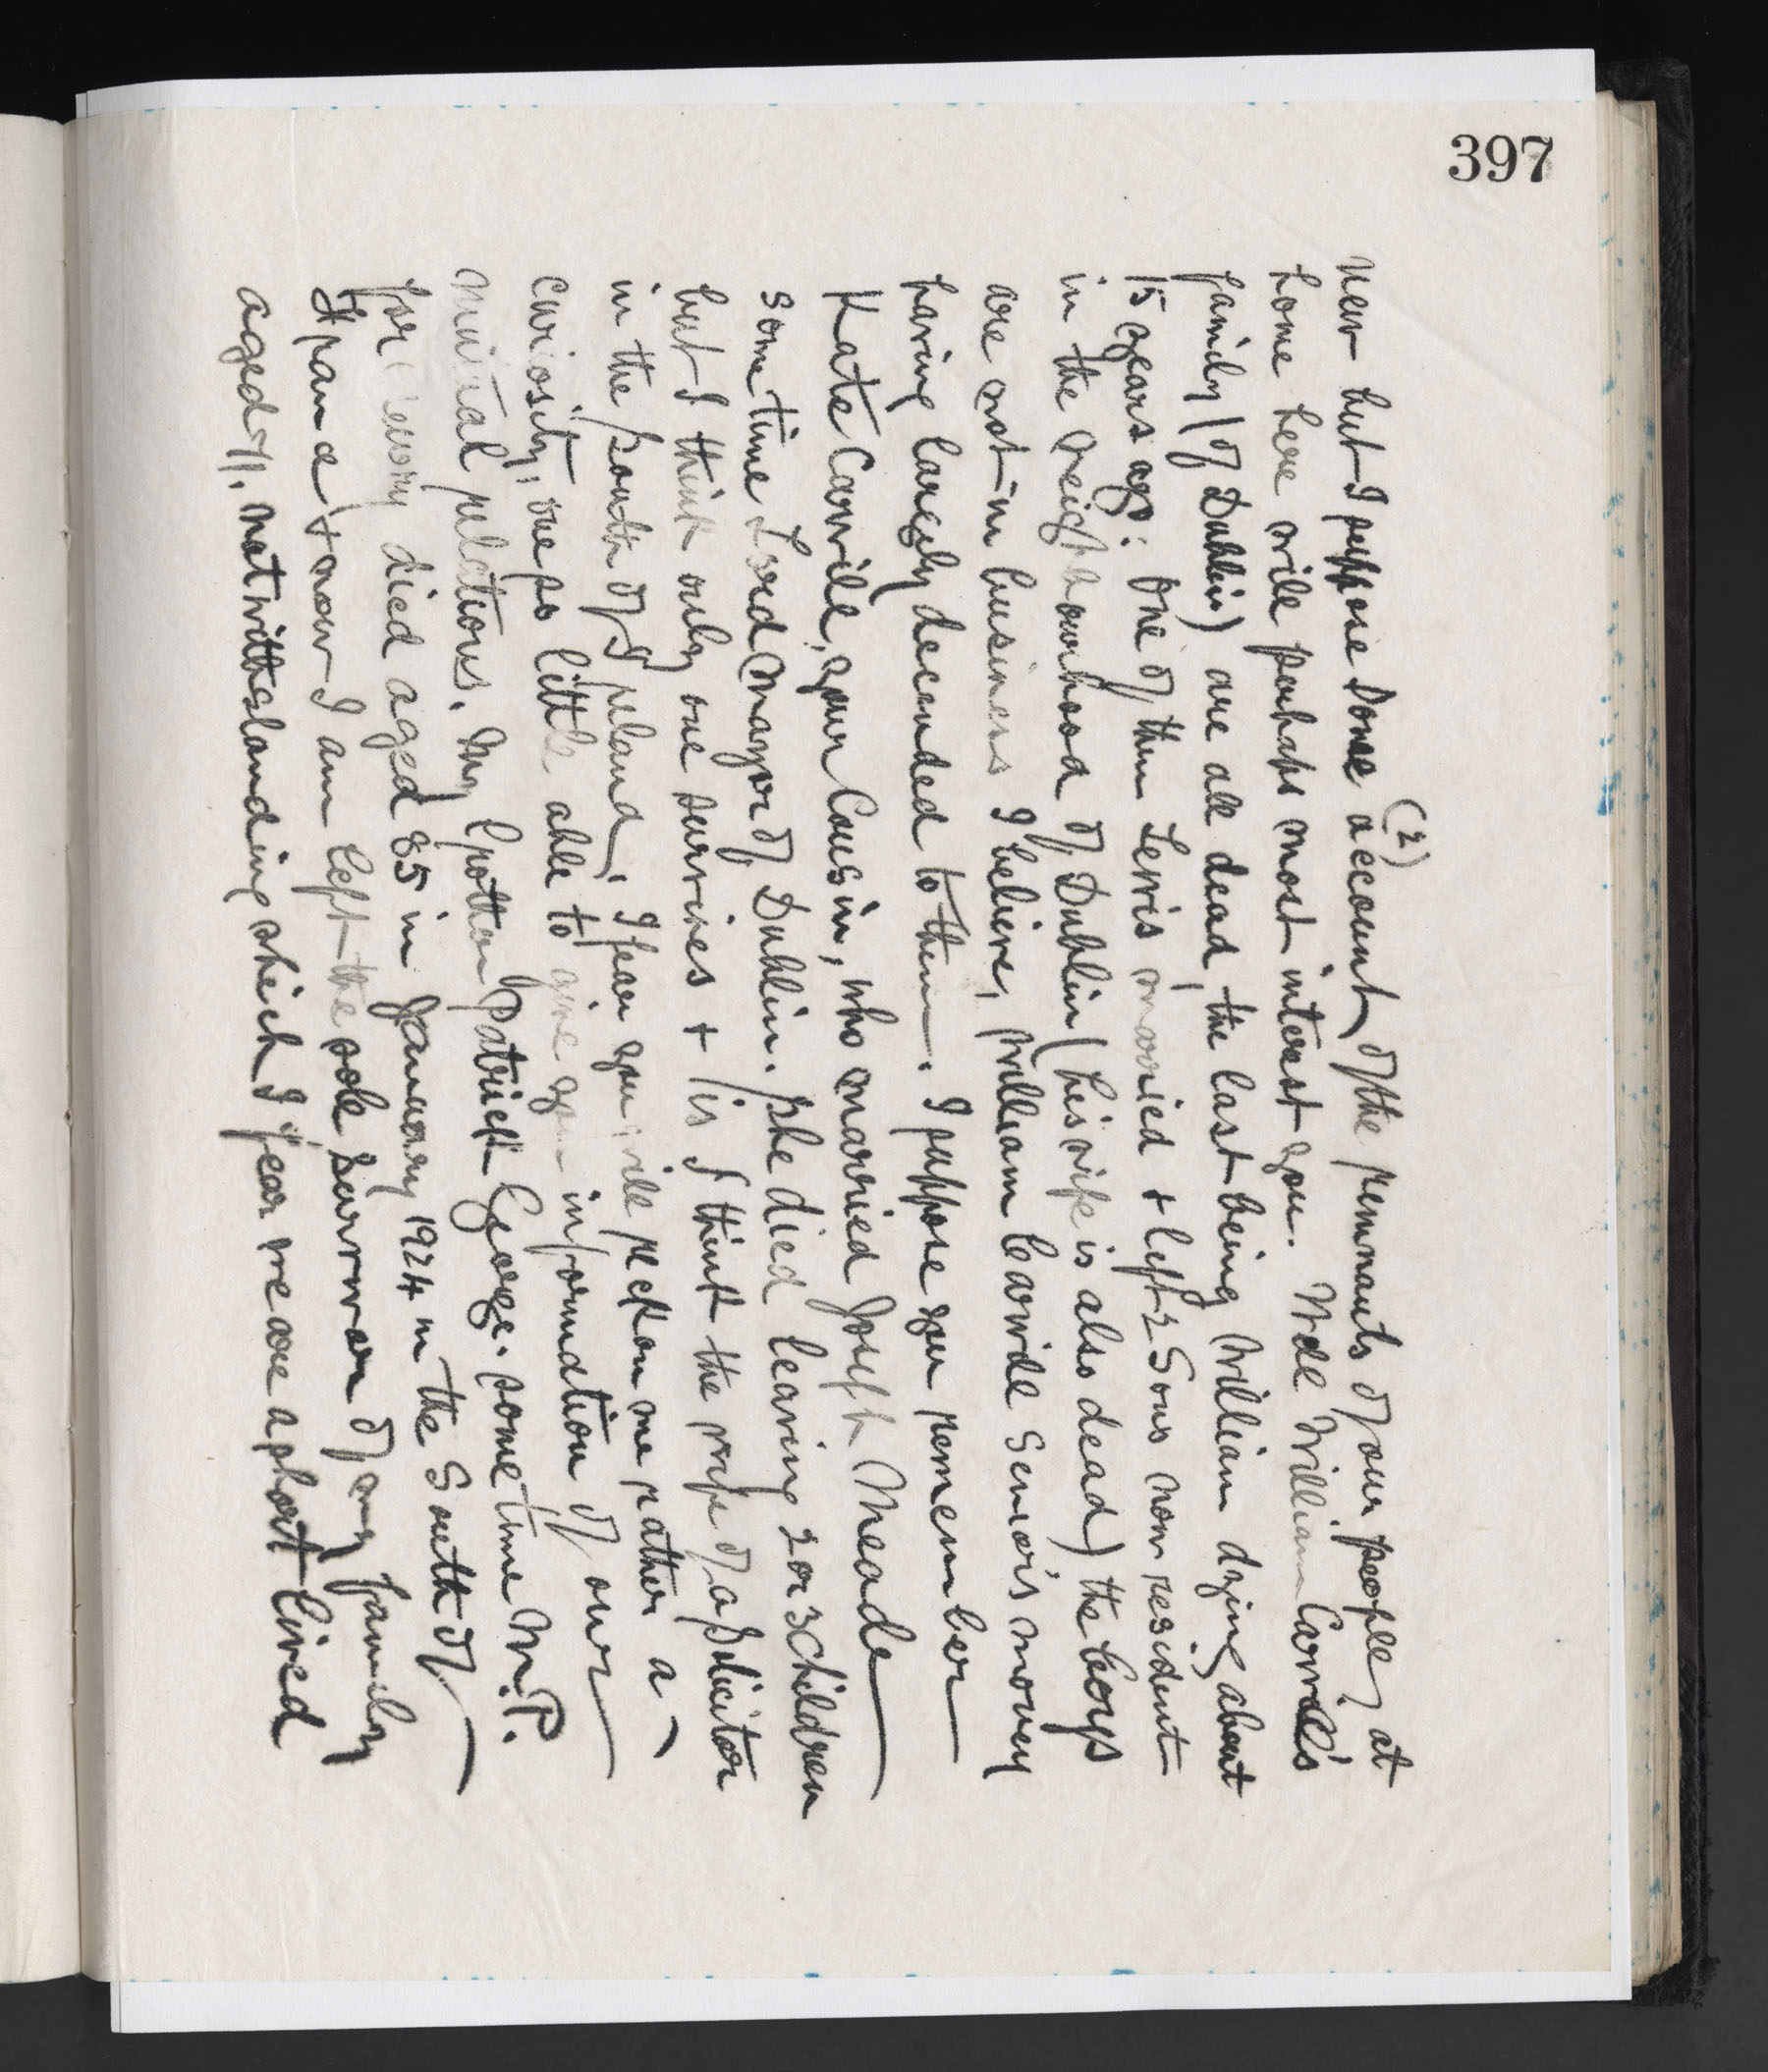 397
(2)
new but I suppose some account of the remnants of our people at
home here will perhaps most interest you. Well William Carvill's
family (of Dublin) are all dead, the last being William dying about
15 years ago: one of them Lewis married & left 2 Sons now resident
in the neighbourhood of Dublin (his wife is also dead) the boys
are not in business I believe, William Carvill Senior's money
having largely decended to them. I suppose you remember
Kate Carvill, your Cousin, who married Joseph Meade
some time Lord Mayor of Dublin. She died leaving 2 or 3 Children
but I think only one survives & is I think the wife of a Solicitor
in the South of Ireland. I fear you will reckon me rather a
curiosity, one so little able to give you information of our
mutual relations. My brother Patrick George. some time M.P.
for Newry died aged 85 in January 1924 in the South of
France & now I am left the sole survivor of my family
aged 71, notwithstanding which I fear we are a short lived